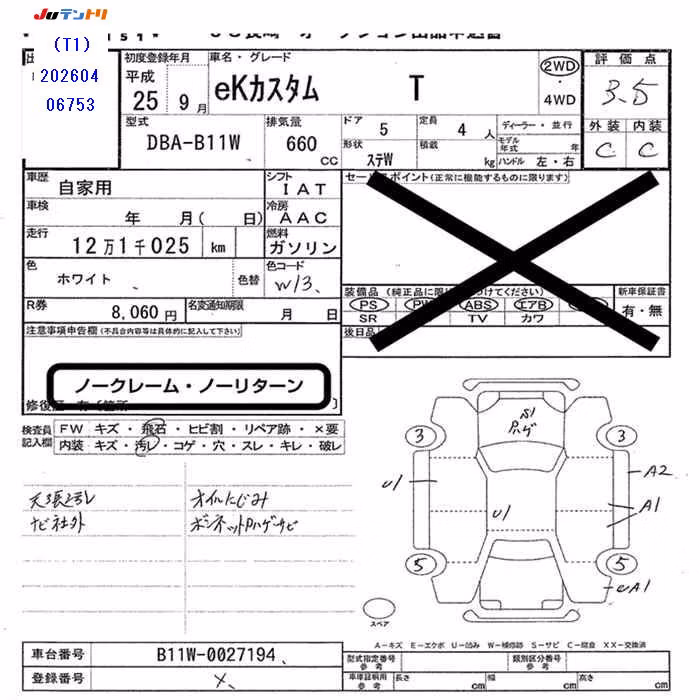 JUテントリ
(T1)
202604
06753
初度登録年月
平成
25 9月
車名・グレード
eKカスタム T
2WD
・
4WD
評価点
3.5
外装 内装
C C
型式
DBA-B11W
排気量
660
CC
ドア 5
定員 4人
ディーラー・並行
モデル年式 年
形状 ステW
積載 kg
ハンドル 左・右
車歴
自家用
シフト
IAT
セールスポイント(正常に機能するものに限ります)
車検
年 月( 日)
冷房
AAC
走行
12万1千025 km
燃料
ガソリン
色
ホワイト
色替
色コード
W13
R券
8,060円
名変通知期限
月 日
装備品(純正品に限り つけてください)
PS PW ABS エアB
SR TV カワ
新車保証書
有・無
後日品
注意事項申告欄(不具合内容等は具体的に記入して下さい)
ノークレーム・ノーリターン
修復歴 有〔箇所 〕
検査員
記入欄
FW キズ・飛石・ヒビ割・リペア跡・×要
内装・キズ・汚レ・コゲ・穴・スレ・キレ・破レ
天張汚レ
ナビ社外
オイルにじみ
ボンネットPハゲサビ
S1
Pハゲ
3 3
A2
U1
U1
A1
5 5
A1
スペア
A-キズ E-エクボ U-凹み W-補修跡 S-サビ C-腐食 XX-交換済
車台番号
B11W-0027194
登録番号
×
型式指定番号
参考
類別区分番号
参考
車庫証明用
参考
長さ cm
幅 cm
高さ cm